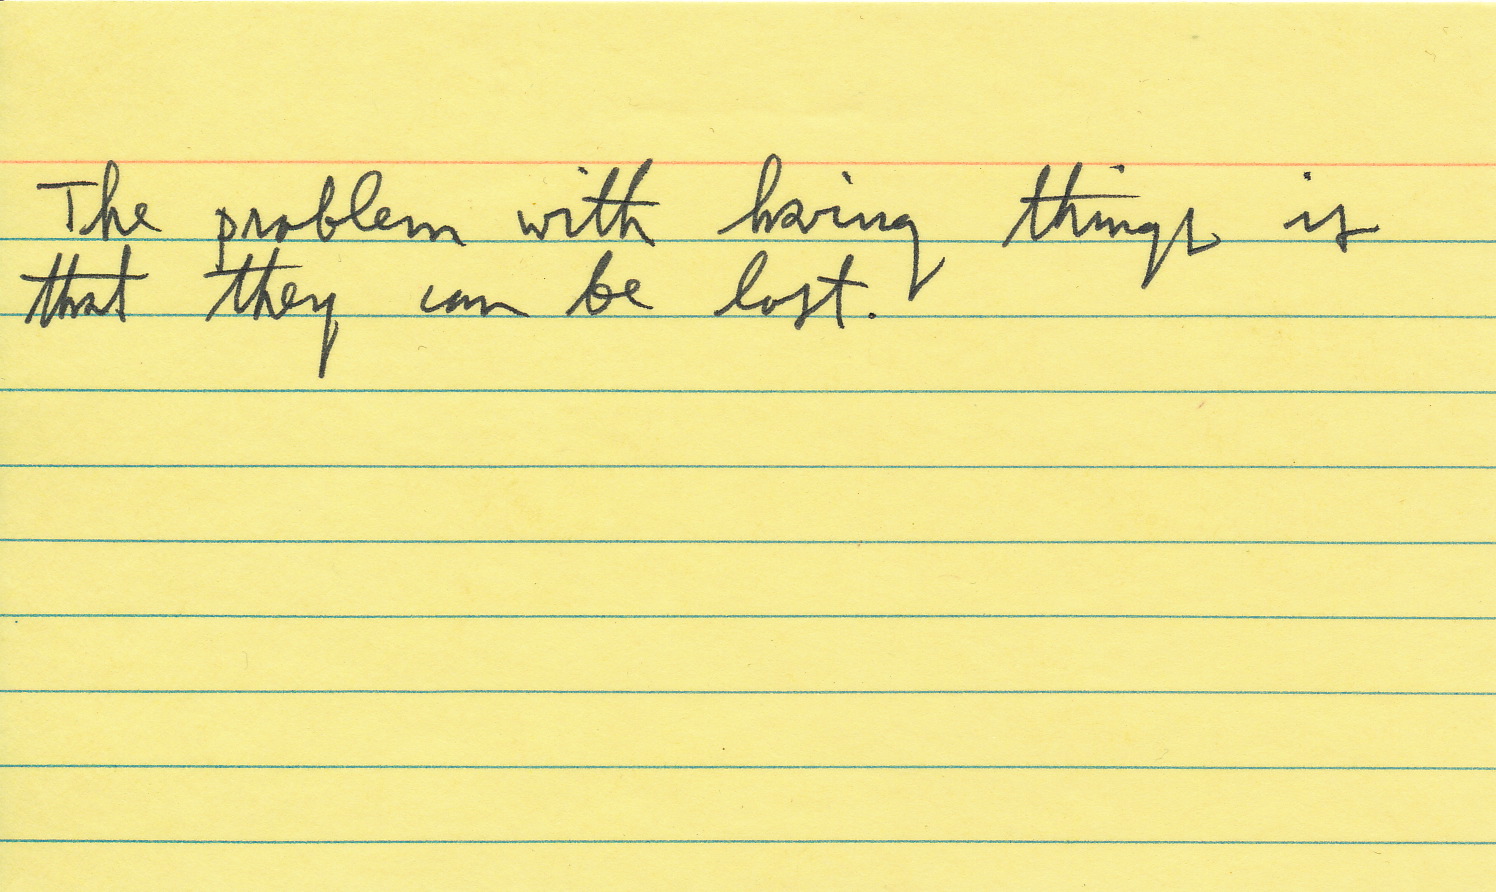 The problem with having things is
that they can be lost.